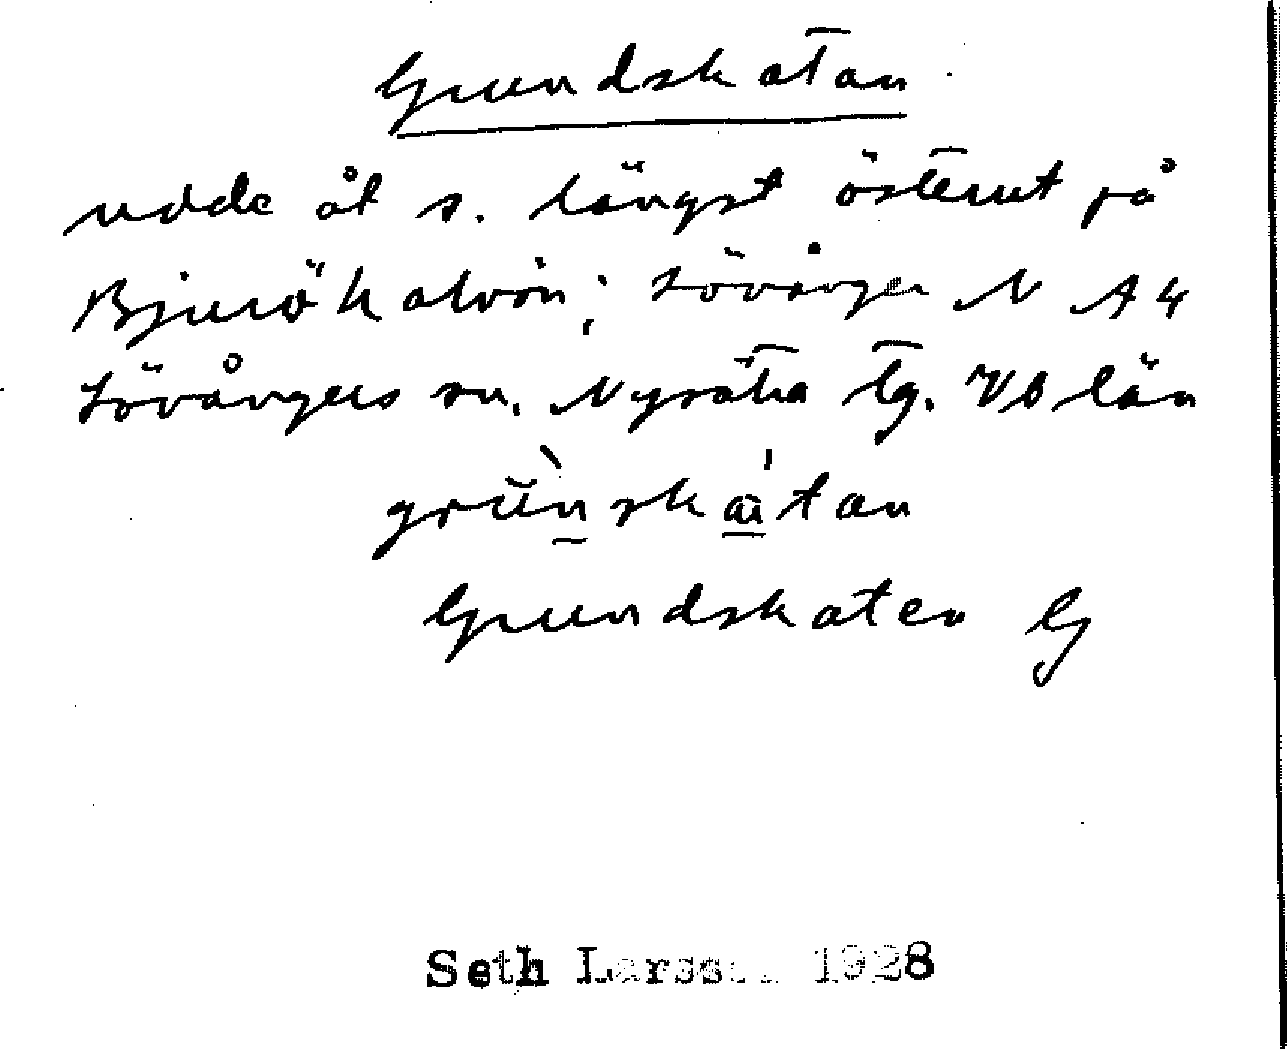 Grundskatan
udde åt s. längst österut på
Bjuröhalvön; Lövånger N A 4
Lövångers sn. Nysätra tg. VB län
grŭǹskatan
Grundskaten G
Seth Larsson 1928